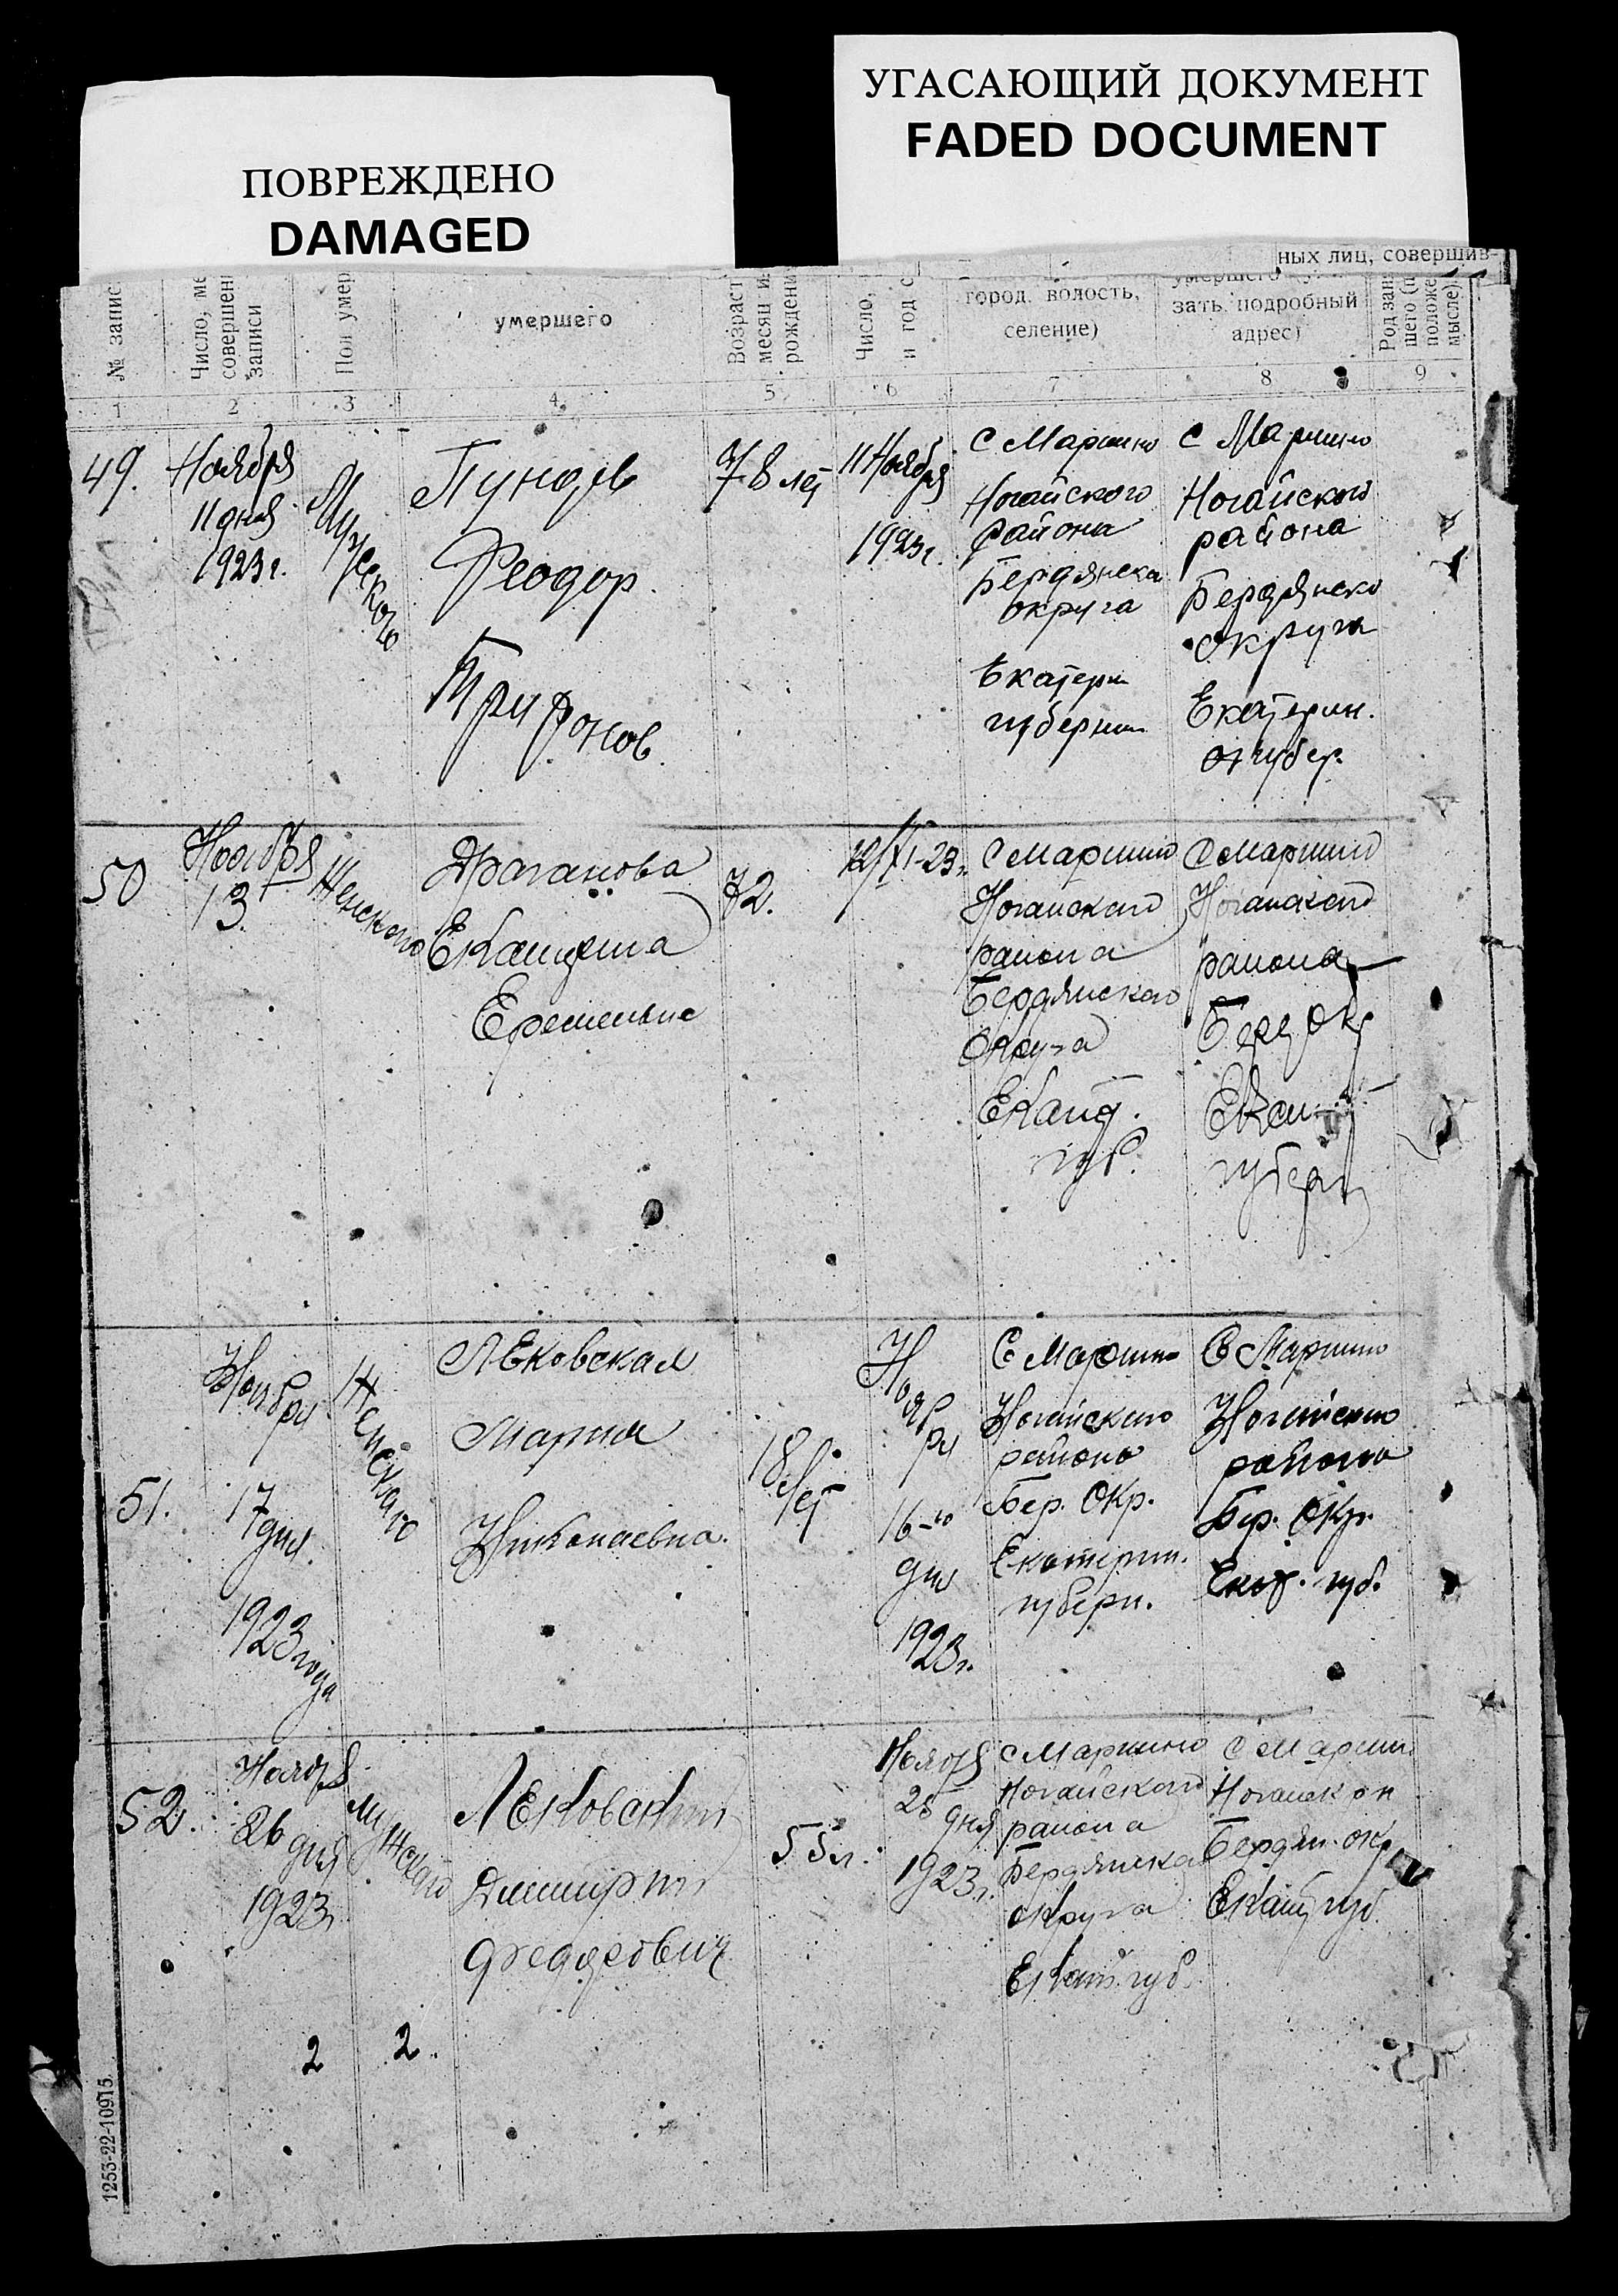 ПОВРЕЖДЕНО
DAMAGED
УГАСАЮЩИЙ ДОКУМЕНТ
FADED DOCUMENT
ных лиц, совершив-
№ запис
Число, ме
совершен
записи
Пол умер
умершего
Возраст
месяц и
рождени
Число,
и год с
город, волость,
селение)
умершего (у
зать подробный
адрес)
Род зан
шего (п
положе
мысле)
1
2
3
4
5
6
7
8
9
49.
Ноября
11 дня
1923 г.
Мужского
Пундев
Феодор.
Трифонов
78 лет
11 Ноября
1923 г.
С Марино
Ногайского
района
Бердянска
округа
Екатери
губернии
С Марино
Ногайского
района
Бердянско
округа
Екатерин.
губер.
50
Ноября
13.
Женского
Драганова
Екатерина
72.
12/XI-23 г.
С Марино
Ногайского
района
Бердянского
Округа
Екат.
губ.
С Марино
Ногайского
района
Берд Окр
Екат
губерн
51.
Ноября
17
дня.
1923 года
Женского
Лековская
Мария
Николаевна.
18 лет
Ноября
16-го
дня
1923 г.
С Марино
Ногайского
района
Бер. Окр.
Екатерин.
губерн.
С Марино
Ногайского
района
Бер. Окр.
Екат. губ.
52.
Ноября
26 дня
1923 г.
Мужского
Лековский
Димитрий
Федорович
55 л.
Ноября
25 дня
1923 г.
С Марино
Ногайского
района
Бердянска
округа
Екат. губ.
С Марин
Ногайск
Бердян. окр
Екат губ.
2
2.
1253-22-10915.